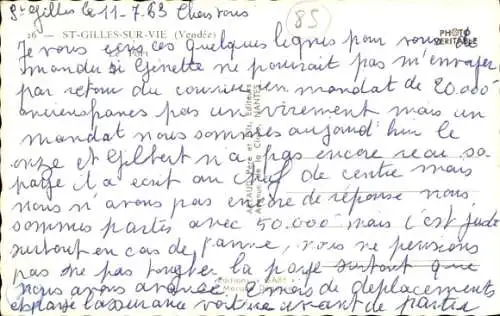 St gilles le 11-7.63 Chers vous
85
26 — ST-GILLES-SUR-VIE (Vendée)
PHOTO VERITABLE
Je vous ecris ces quelques lignes pour vous
mander si Ginette ne pourrait pas m'envoyer
par retour du courrier un mandat de 20.000
anciens francs pas un virement mais un
mandat nous sommes aujourd'hui le
onze et Gilbert n'a pas encore recu sa
paye il a ecrit au chef de centre mais
nous n'avons pas encore de réponse nous
sommes partis avec 50.000 mais c'est juste
surtout en cas de panne, nous ne pensions
pas ne pas toucher la paye surtout que
nous avons avancé 2 mois de deplacements
et payé l'assurance voiture avant de partir